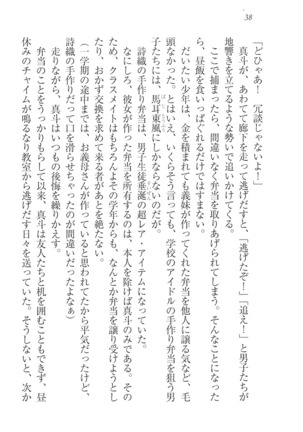 38
「どひゃあ！　冗談じゃないよ！」
真斗が、あわてて廊下を走って逃げだすと、「逃げたぞ！」「追え！」と男子たちが
地響きを立てるような勢いで追いかけてくる。
ここで捕まったら、間違いなく弁当を取りあげられてしまう。そんなことになった
ら、昼飯を食いっぱぐれるだけではすまない。
だいたい少年は、金を積まれても義妹が作ってくれた弁当を他人に譲る気など、毛
頭なかった。とはいえ、いくらそう言っても、学校のアイドルの手作り弁当を狙う男
子たちには、馬耳東風にしかならないだろう。
なにしろ、彼女が作った弁当を所有するのは、本人を除けば真斗のみである。おかげで、
詩織の手作り弁当は、男子生徒垂涎の超レア・アイテムになっていた。
ため、クラスメイトはもちろんよその学年からも、なんとか弁当を譲り受けようとし
たり、おかず交換を求めて来る者があとを絶たない。
（一学期の途中までは、お義母さんが作っていると思われてたから平気だったけど、
詩織の手作りだって口を滑らせちゃったのが間違いだったよなぁ）
走りながら、真斗はいつもの後悔を繰りかえす。
弁当のことをうっかりもらして以来、真斗は友人たちと机を囲むこともできず、昼
休みのチャイムが鳴るなり教室から逃げだす日々を送っていた。そうしないと、次か